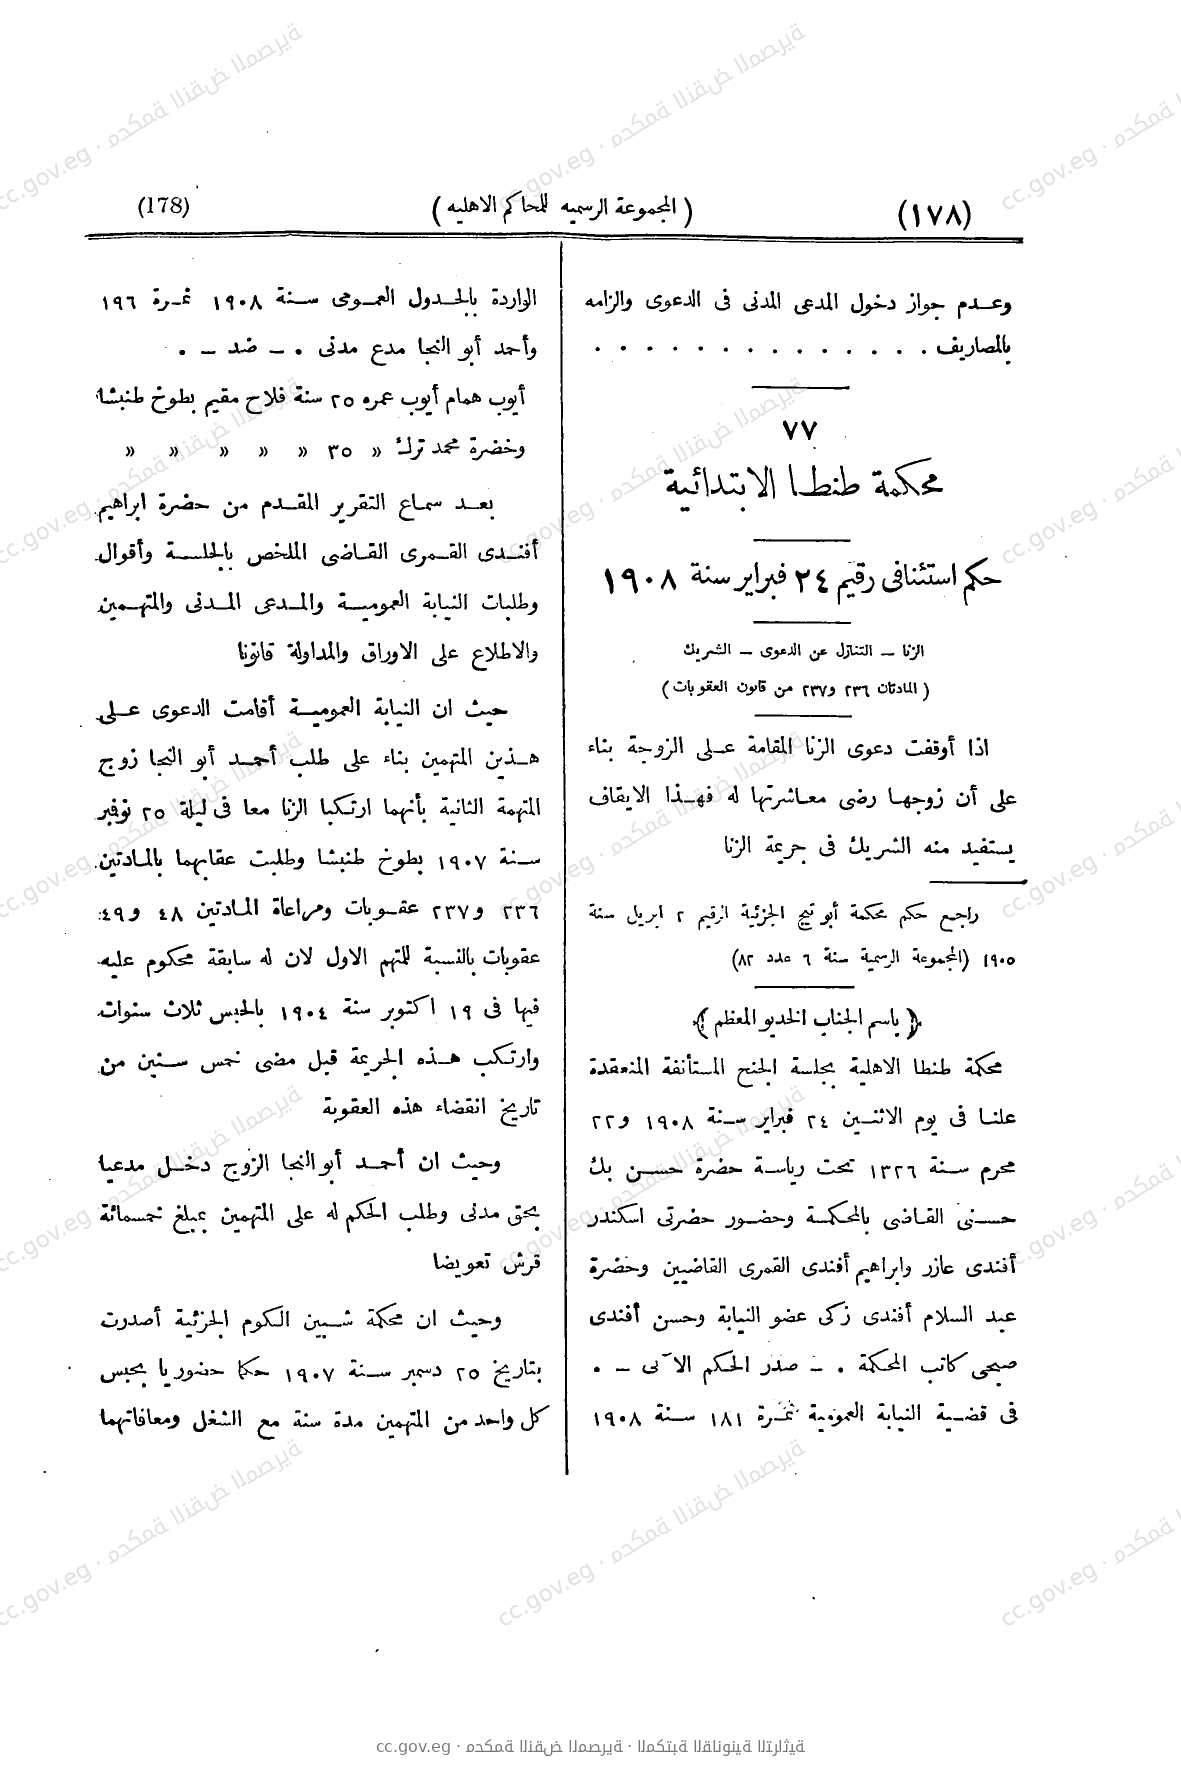 (١٧٨) ( المجموعة الرسميه للمحاكم الاهليه ) (178)
وعـدم جواز دخول المدعى المدنى فى الدعوى والزامه
بالمصاريف . . . . . . . . . . . . . .
٧٧
محكمة طنطا الابتدائية
حكم استئنافى رقيم ٢٤ فبراير سنة ١٩٠٨
الزنا – التنازل عن الدعوى – الشريك
( المادتان ٢٣٦ و٢٣٧ من قانون العقوبات )
اذا أوقفت دعوى الزنا المقامة على الزوجة بناء
على أن زوجها رضى معاشرتها له فهذا الايقاف
يستفيد منه الشريك فى جريمة الزنا
راجع حكم محكمة أبو تيج الجزئية الرقيم ٢ ابريل سنة
١٩٠٥ (المجموعة الرسمية سنة ٦ عدد ٨٢)
﴿ باسم الجناب الخديو المعظم ﴾
محكمة طنطا الاهلية بجلسة الجنح المستأنفة المنعقدة
علنا فى يوم الاثنين ٢٤ فبراير سنة ١٩٠٨ و٢٢
محرم سنة ١٣٢٦ تحت رياسة حضرة حسن بك
حسنى القاضى بالمحكمة وحضور حضرتى اسكندر
أفندى عازر وابراهيم أفندى القمرى القاضيين وحضرة
عبد السلام أفندى زكى عضو النيابة وحسن أفندى
صبحى كاتب المحكمة . – صدر الحكم الآتى – .
فى قضية النيابة العمومية نمرة ١٨١ سنة ١٩٠٨
الواردة بالجدول العمومى سنة ١٩٠٨ نمرة ١٩٦
وأحمد أبو النجا مدع مدنى . – ضد – .
أيوب همام أيوب عمره ٢٥ سنة فلاح مقيم بطوخ طنبشا
وخضرة محمد ترك « ٣٥ « « « « «
بعد سماع التقرير المقدم من حضرة ابراهيم
أفندى القمرى القاضى الملخص بالجلسة وأقوال
وطلبات النيابة العمومية والمدعى المدنى والمتهمين
والاطلاع على الاوراق والمداولة قانونا
حيث ان النيابة العمومية أقامت الدعوى على
هذين المتهمين بناء على طلب أحمد أبو النجا زوج
المتهمة الثانية بأنهما ارتكبا الزنا معا فى ليلة ٢٥ نوفبر
سنة ١٩٠٧ بطوخ طنبشا وطلبت عقابهما بالمادتين
٢٣٦ و٢٣٧ عقوبات ومراعاة المادتين ٤٨ و٤٩
عقوبات بالنسبة للمتهم الاول لان له سابقة محكوم عليه
فيها فى ١٩ اكتوبر سنة ١٩٠٤ بالحبس ثلاث سنوات
وارتكب هذه الجريمة قبل مضى خمس سنين من
تاريخ انقضاء هذه العقوبة
وحيث ان أحمد أبو النجا الزوج دخل مدعيا
بحق مدنى وطلب الحكم له على المتهمين بمبلغ خمسمائة
قرش تعويضا
وحيث ان محكمة شبين الكوم الجزئية أصدرت
بتاريخ ٢٥ دسمبر سنة ١٩٠٧ حكما حضوريا بحبس
كل واحد من المتهمين مدة سنة مع الشغل ومعافاتهما
cc.gov.eg · محكمة النقض المصرية · المكتبة القانونية التراثية